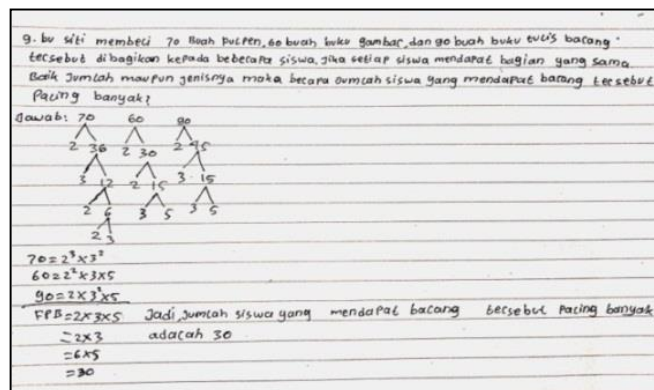 9. bu siti membeli 70 Buah pulpen, 60 buah buku gambar, dan 90 buah buku tulis barang
tersebut dibagikan kepada beberapa siswa. jika setiap siswa mendapat bagian yang sama
Baik Jumlah maupun jenisnya maka berapa Jumlah siswa yang mendapat barang tersebut
Paling banyak?
Jawab: 70 60 90
2 36 2 30 2 45
3 12 2 15 3 15
2 6 3 5 3 5
2 3
70 = 2³ x 3²
60 = 2² x 3 x 5
90 = 2 x 3² x 5
FPB = 2 x 3 x 5 Jadi, Jumlah siswa yang mendapat barang tersebut Paling banyak
= 2 x 3 adalah 30
= 6 x 5
= 30